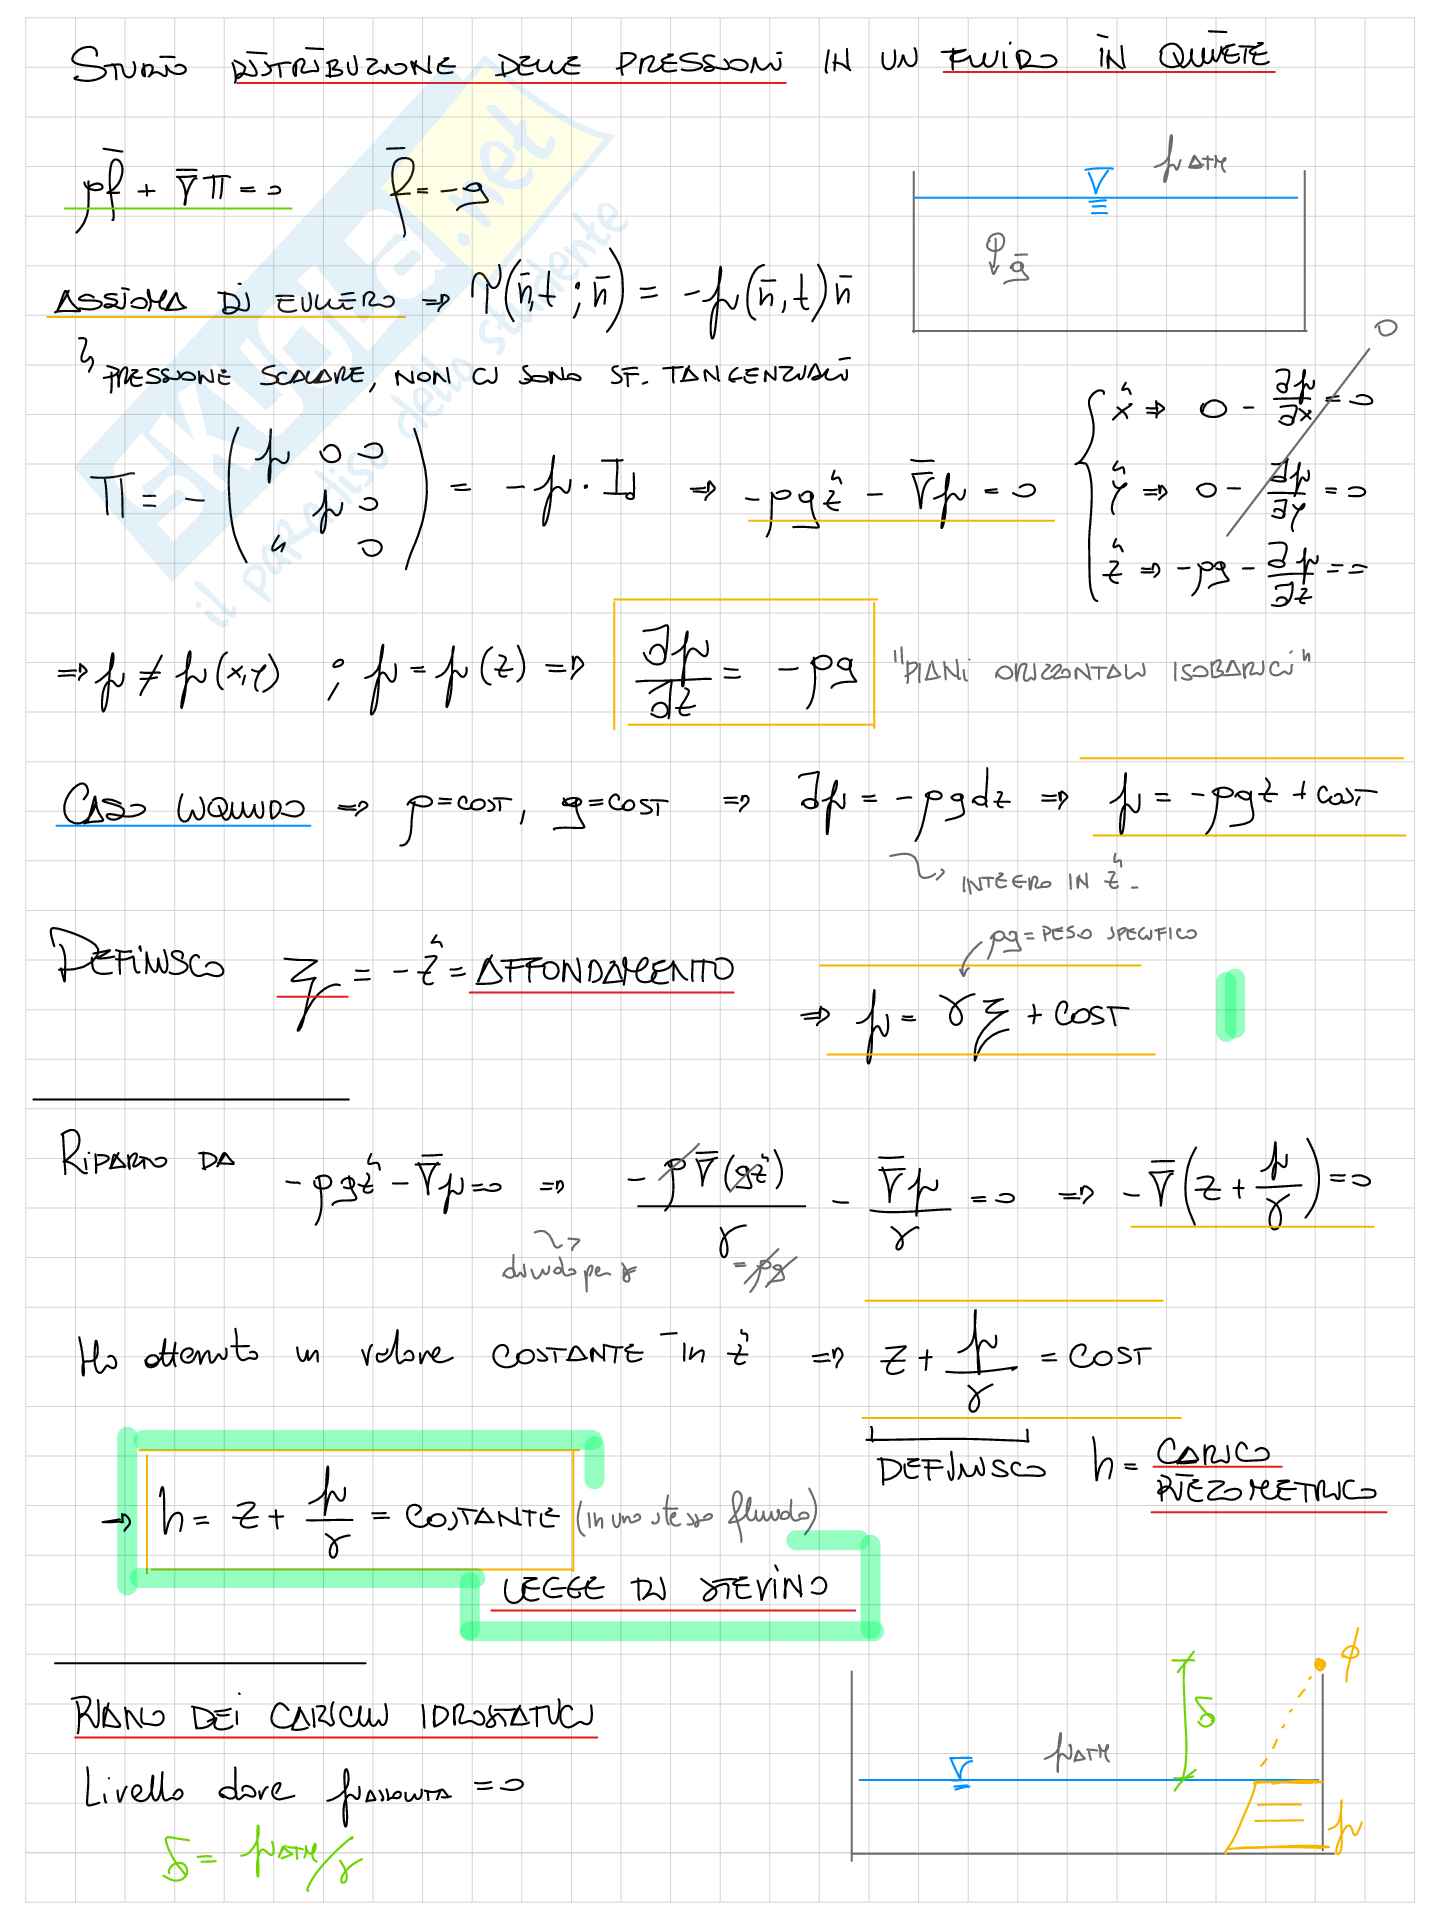 STUDIO DISTRIBUZIONE DELLE PRESSIONI IN UN FLUIDO IN QUIETE
ρf̄ + ∇̄Π = 0    f̄ = -g
p ATM
ḡ
ASSIOMA DI EULERO ⇒ τ(n̄,t ; n̄) = -p(n̄,t)n̄
↳ PRESSIONE SCALARE, NON CI SONO SF. TANGENZIALI
x̂ ⇒ 0 - ∂p/∂x = 0
0
ŷ ⇒ 0 - ∂p/∂y = 0
ẑ ⇒ -ρg - ∂p/∂z ==
Π = - (p 0 0
p 0
" 0) = -p · Id ⇒ -ρgẑ - ∇̄p = 0
⇒ p ≠ p(x,y) ; p = p(z) ⇒ ∂p/∂z = -ρg "PIANI ORIZZONTALI ISOBARICI"
CASO LIQUIDO ⇒ ρ = COST, g = COST ⇒ ∂p = -ρgdz ⇒ p = -ρgz + COST
INTEGRO IN ẑ.
ρg = PESO SPECIFICO
DEFINISCO ξ = -ẑ = AFFONDAMENTO
⇒ p = γξ + COST
RIPARTO DA -ρgẑ - ∇̄p = 0 ⇒ -ρ∇̄(gẑ)/γ - ∇̄p/γ = 0 ⇒ -∇̄(z + p/γ) = 0
divido per γ
= ρg
Ho ottenuto un valore COSTANTE in ẑ ⇒ z + p/γ = COST
DEFINISCO h = CARICO
PIEZOMETRICO
→ h = z + p/γ = COSTANTE (in uno stesso fluido)
LEGGE DI STEVINO
PIANO DEI CARICHI IDROSTATICI
Livello dove p ASSOLUTA = 0
δ = p ATM/γ
p ATM
δ
ϕ
p
SKUOLA.net
il paradiso dello studente